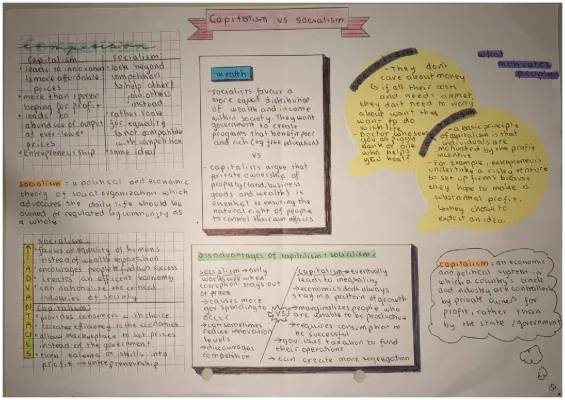 Capitalism vs socialism
Competition
Capitalism
leads to innovation
& more affordable
prices
more than 1 person
hoping for profit
leads to
abundance of output
at ever-lower
prices
Entrepreneurship
socialism
look beyond
competition
help other
instead
rather look
for equality
is not compatible
with competition
same idea
socialism = a political and economic
theory of social organization which
advocates the daily life should be
owned or regulated by community as
a whole.
wealth
socialists favour a
more equal distribution
of wealth and income
within society. They want
government to create
programs that benefit poor
and rich (eg free education)
vs
capitalists argue that
private ownership of
property (land, business
goods and wealth) is
essential to ensuring the
natural right of people
to control their own affairs
what
motivates
people?
They don't
care about money
if all their costs
and needs are met,
they don't need to worry
about what they
want to do
with life.
a basic principle
of capitalism is that
individuals are
motivated by the profit
incentive
For example, entrepreneurs
undertake a risky venture
to set up firms because
they hope to make a
substantial profit.
they choose to
exploit an idea
ADVANTAGES
socialism:
focus on equality of humans
instead of wealth separation
encourages people to
creates an efficient economy
can nationalize the critical
industries of society
Capitalism:
provides consumers with choice
creates efficiency to the economics
allow marketplace to set prices
instead of the government
turn talents or skills into
profit → entrepreneurship
disadvantages of capitalism & socialism:
socialism → only
works well when
corruption stays out
of place
→ causes more
gov spending to
occur
→ can sometimes
reduce motivation
levels
→ discourages
competition
VS
Capitalism → eventually
leads to inequality
→ economies don't always
stay in a pattern of growth
→ marginalizes people who
are unable to be productive
→ requires consumption to
be successful
→ gov uses taxation to fund
their operations
→ can create more segregation
capitalism: an economic
and political system in
which a country's trade
and industry are controlled
by private owners for
profit, rather than
by the state / government